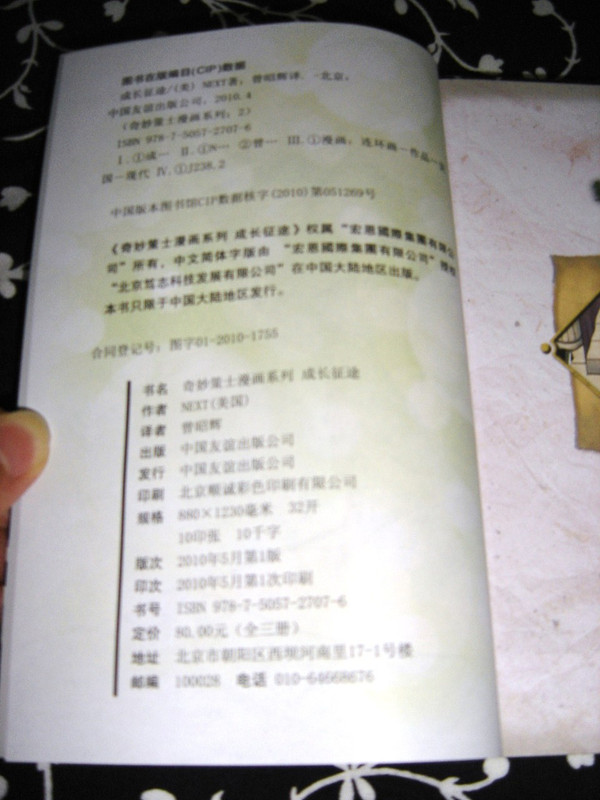 图书在版编目(CIP)数据
成长征途/(美) NEXT著；曾昭辉译. -北京：
中国友谊出版公司, 2010.4
(奇妙策士漫画系列；2)
ISBN 978-7-5057-2707-6
Ⅰ.①成… Ⅱ.①N… ②曾… Ⅲ.①漫画：连环画-作品-美
国-现代 Ⅳ.①J238.2
中国版本图书馆CIP数据核字(2010)第051269号
《奇妙策士漫画系列 成长征途》权属“宏恩國際集團有限公
司”所有，中文简体字版由 “宏恩國際集團有限公司”授权
“北京笃志科技发展有限公司”在中国大陆地区出版。
本书只限于中国大陆地区发行。
合同登记号：图字01-2010-1755
书名 奇妙策士漫画系列 成长征途
作者 NEXT(美国)
译者 曾昭辉
出版 中国友谊出版公司
发行 中国友谊出版公司
印刷 北京顺诚彩色印刷有限公司
规格 880×1230毫米 32开
10印张 10千字
版次 2010年5月第1版
印次 2010年5月第1次印刷
书号 ISBN 978-7-5057-2707-6
定价 80.00元（全三册）
地址 北京市朝阳区西坝河南里17-1号楼
邮编 100028 电话 010-64668676